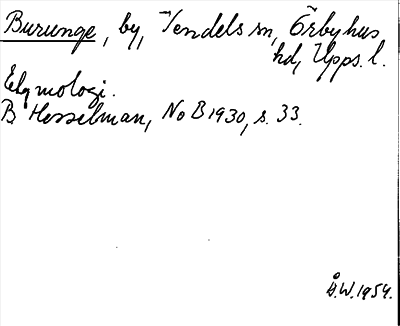 Burunge, by, Vendels sn, Örbyhus
hd, Upps. l.
Etymologi.
B Hesselman, NoB 1930, s. 33.
Å.W. 1954.